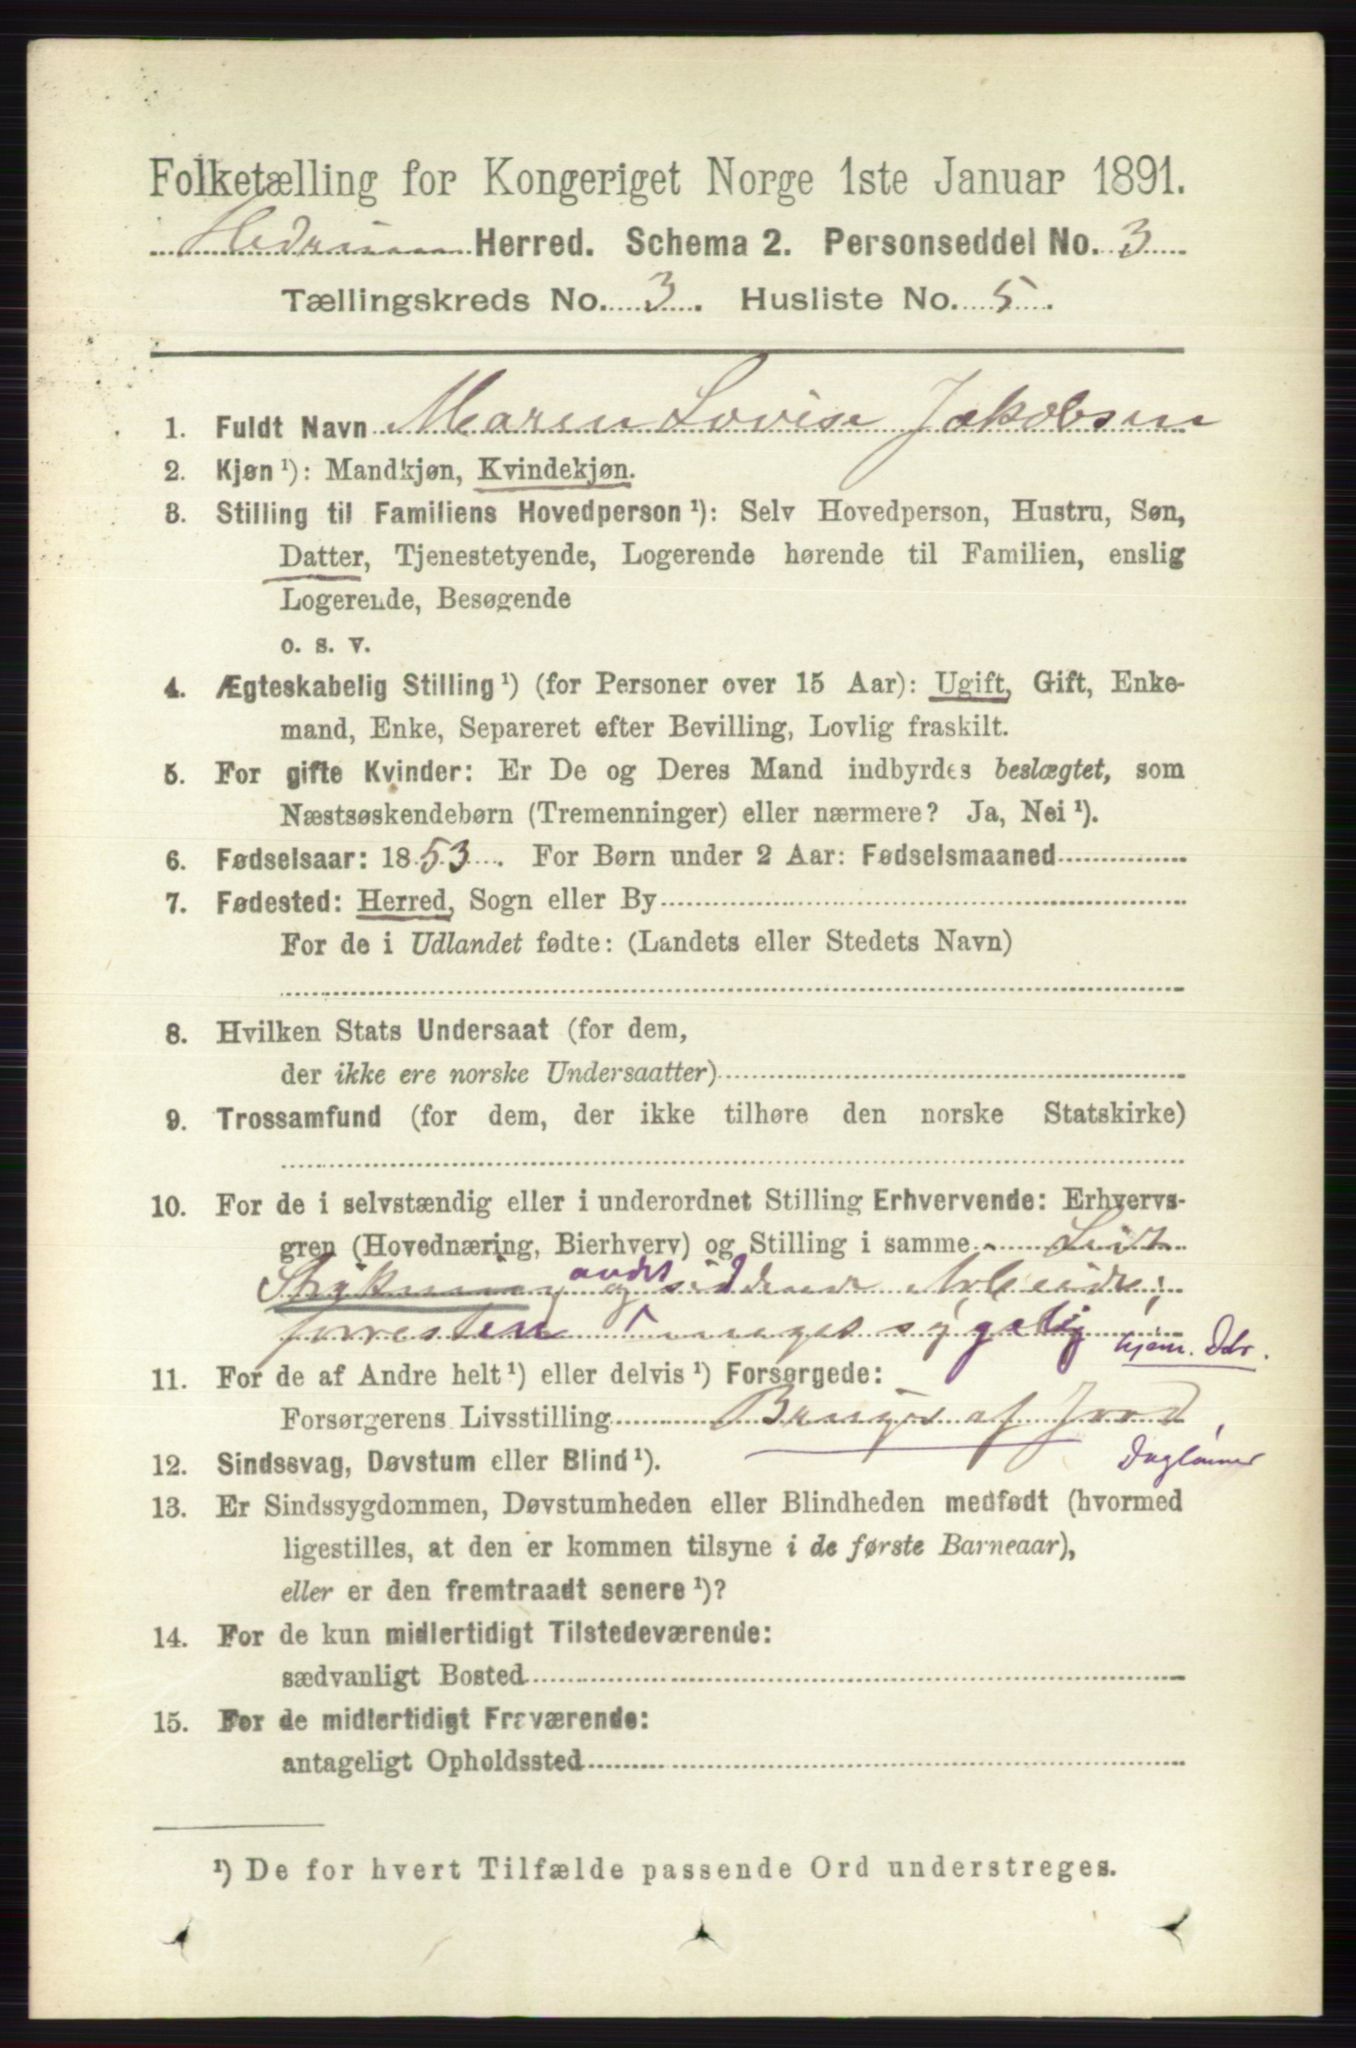 Folketælling for Kongeriget Norge 1ste Januar 1891.
Hedrum Herred. Schema 2. Personseddel No. 3
Tællingskreds No. 3. Husliste No. 5.
1. Fuldt Navn Maren Lovise Jakobsen
2. Kjøn ¹): Mandkjøn, Kvindekjøn.
3. Stilling til Familiens Hovedperson ¹): Selv Hovedperson, Hustru, Søn,
Datter, Tjenestetyende, Logerende hørende til Familien, enslig
Logerende, Besøgende
o. s. v.
4. Ægteskabelig Stilling ¹) (for Personer over 15 Aar): Ugift, Gift, Enke-
mand, Enke, Separeret efter Bevilling, Lovlig fraskilt.
5. For gifte Kvinder: Er De og Deres Mand indbyrdes beslægtet, som
Næstsøskendebørn (Tremenninger) eller nærmere? Ja, Nei ¹).
6. Fødselsaar: 1853. For Børn under 2 Aar: Fødselsmaaned
7. Fødested: Herred, Sogn eller By
For de i Udlandet fødte: (Landets eller Stedets Navn)
8. Hvilken Stats Undersaat (for dem,
der ikke ere norske Undersaatter)
9. Trossamfund (for dem, der ikke tilhøre den norske Statskirke)
10. For de i selvstændig eller i underordnet Stilling Erhvervende: Erhvervs-
gren (Hovednæring, Bierhverv) og Stilling i samme Lidt
Strikning og andet siddende Arbeide;
forresten meget sygelig
hjem. Dtr.
11. For de af Andre helt ¹) eller delvis ¹) Forsørgede:
Forsørgerens Livsstilling Bruger af Jord,
Dagløнner
12. Sindssvag, Døvstum eller Blind ¹).
13. Er Sindssygdommen, Døvstumheden eller Blindheden medfødt (hvormed
ligestilles, at den er kommen tilsyne i de første Barneaar),
eller er den fremtraadt senere ¹)?
14. For de kun midlertidigt Tilstedeværende:
sædvanligt Bosted
15. For de midlertidigt Fraværende:
antageligt Opholdssted
¹) De for hvert Tilfælde passende Ord understreges.